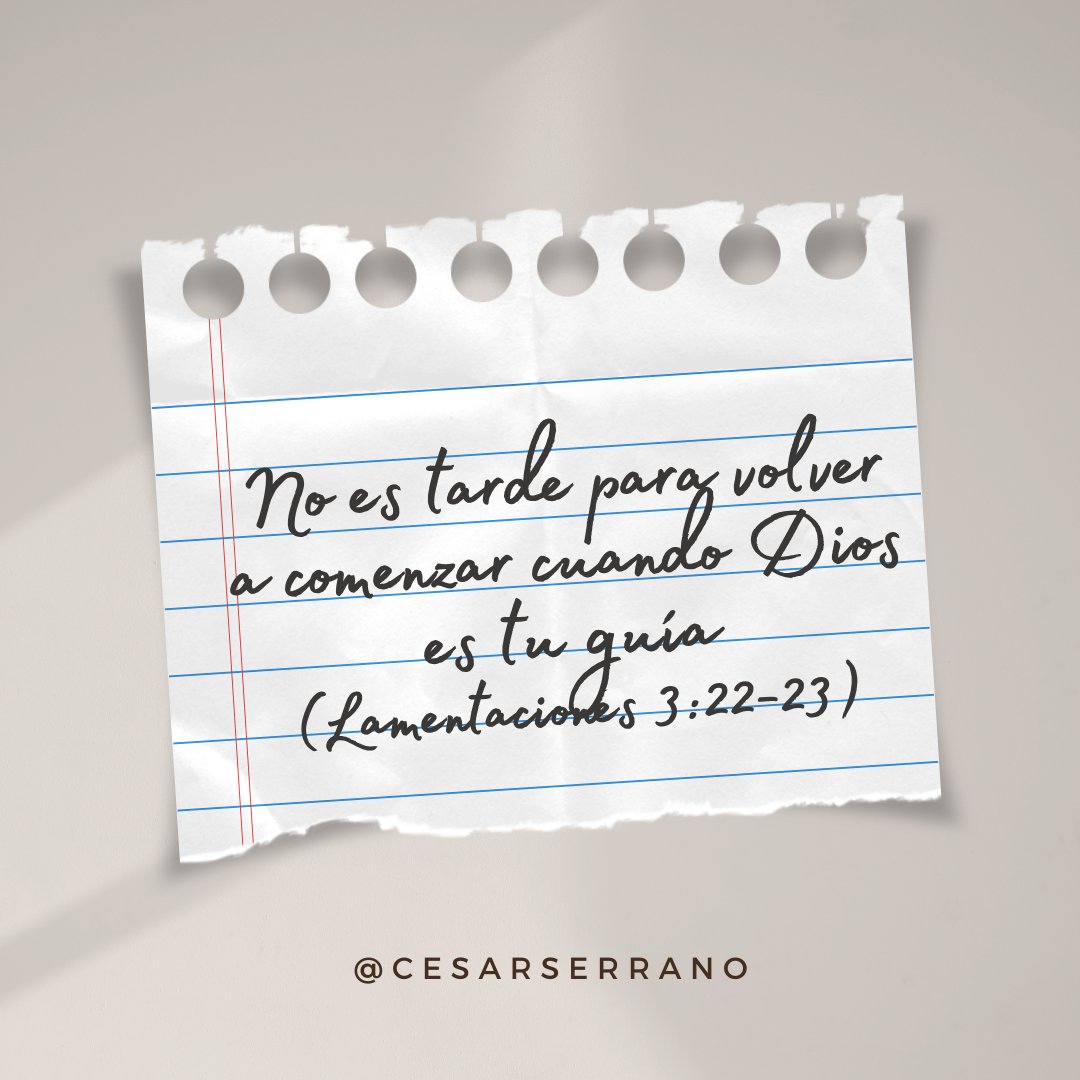 No es tarde para volver
a comenzar cuando Dios
es tu guía
(Lamentaciones 3:22-23)
@CESARSERRANO